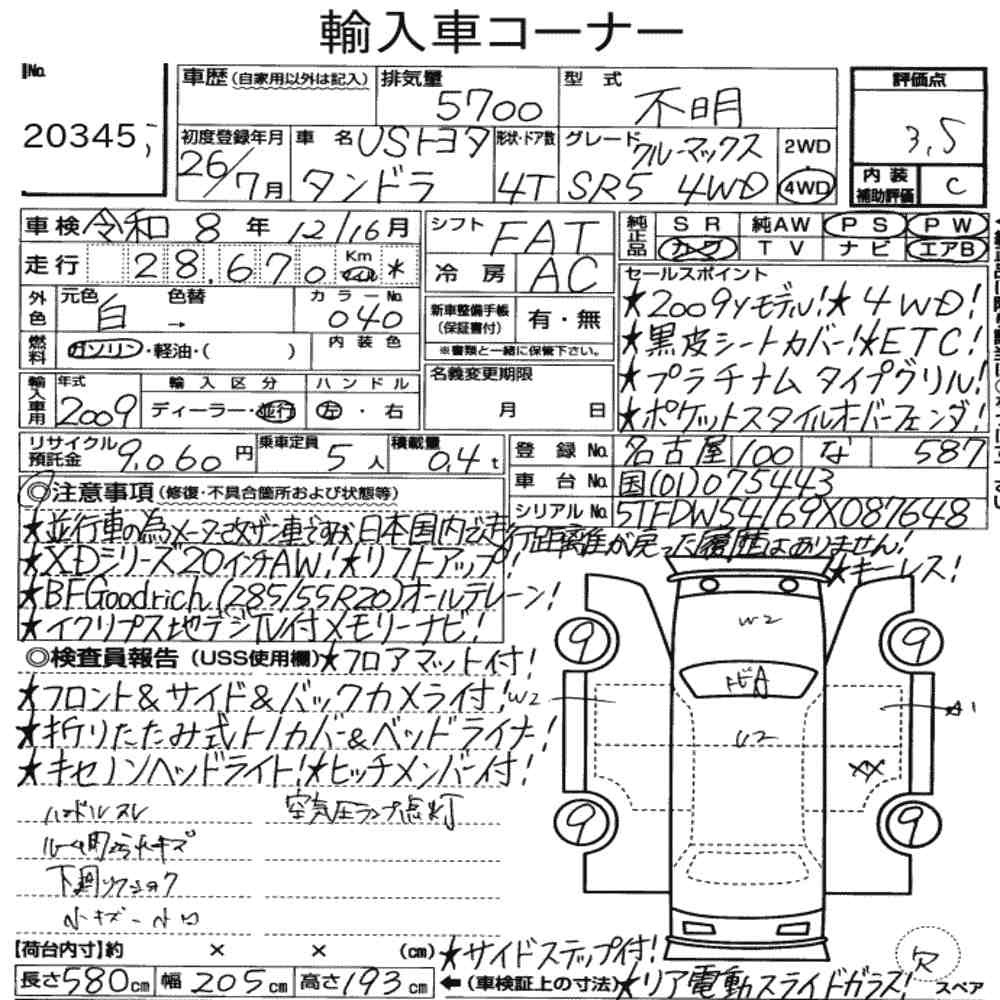 輸入車コーナー
No. 20345
車歴 (自家用以外は記入) 排気量 5700 型式 不明
評価点 3.5
内装補助評価 C
初度登録年月 26/7月 車名 USトヨタ タンドラ 形状・ドア数 4T グレード クルーマックス SR5 4WD 2WD 4WD
車検 令和 8年 12/16月 シフト FAT
純正品 SR 純AW PS PW
カワ TV ナビ エアB
走行 28,670 Km * 冷房 AC
外色 元色 白 色替 → カラーNo. 040
新車整備手帳(保証書付) 有・無
※書類と一緒に保管下さい。
燃料 ガソリン・軽油・( ) 内装色
セールスポイント
★2009yモデル!★4WD!
★黒皮シートカバー!★ETC!
★プラチナムタイプグリル!
★ポケットスタイルオーバーフェンダ!
輸入車用 年式 2009 輸入区分 ディーラー・並行 ハンドル 左・右
名義変更期限 月 日
リサイクル預託金 9,060円 乗車定員 5人 積載量 0.4t
登録No. 名古屋 100 な 587
車台No. 国(01)075443
シリアルNo. 5TFDW54169X087648
◎注意事項 (修復・不具合箇所および状態等)
★並行車の為メーター改ザン車ですが日本国内で走行距離が戻った履歴はありません!
★XDシリーズ20インチAW!★リフトアップ! ★キーレス!
★BFGoodrich(285/55R20)オールテレーン!
★イクリプス地デジTV付メモリーナビ!
◎検査員報告 (USS使用欄) ★フロアマット付!
★フロント&サイド&バックカメラ付!
★折りたたみ式トノカバー&ベッドライナー!
★キセノンヘッドライト!★ヒッチメンバー付!
ハンドルスレ 空気圧ランプ点灯
小キズ-小凹
W2
9 9
トビA
W2
A1
U2
XX
9 9
【荷台内寸】約 × × (cm) ★サイドステップ付!
長さ580cm 幅205cm 高さ193cm ←(車検証上の寸法) ★リア電動スライドガラス!
欠 スペア